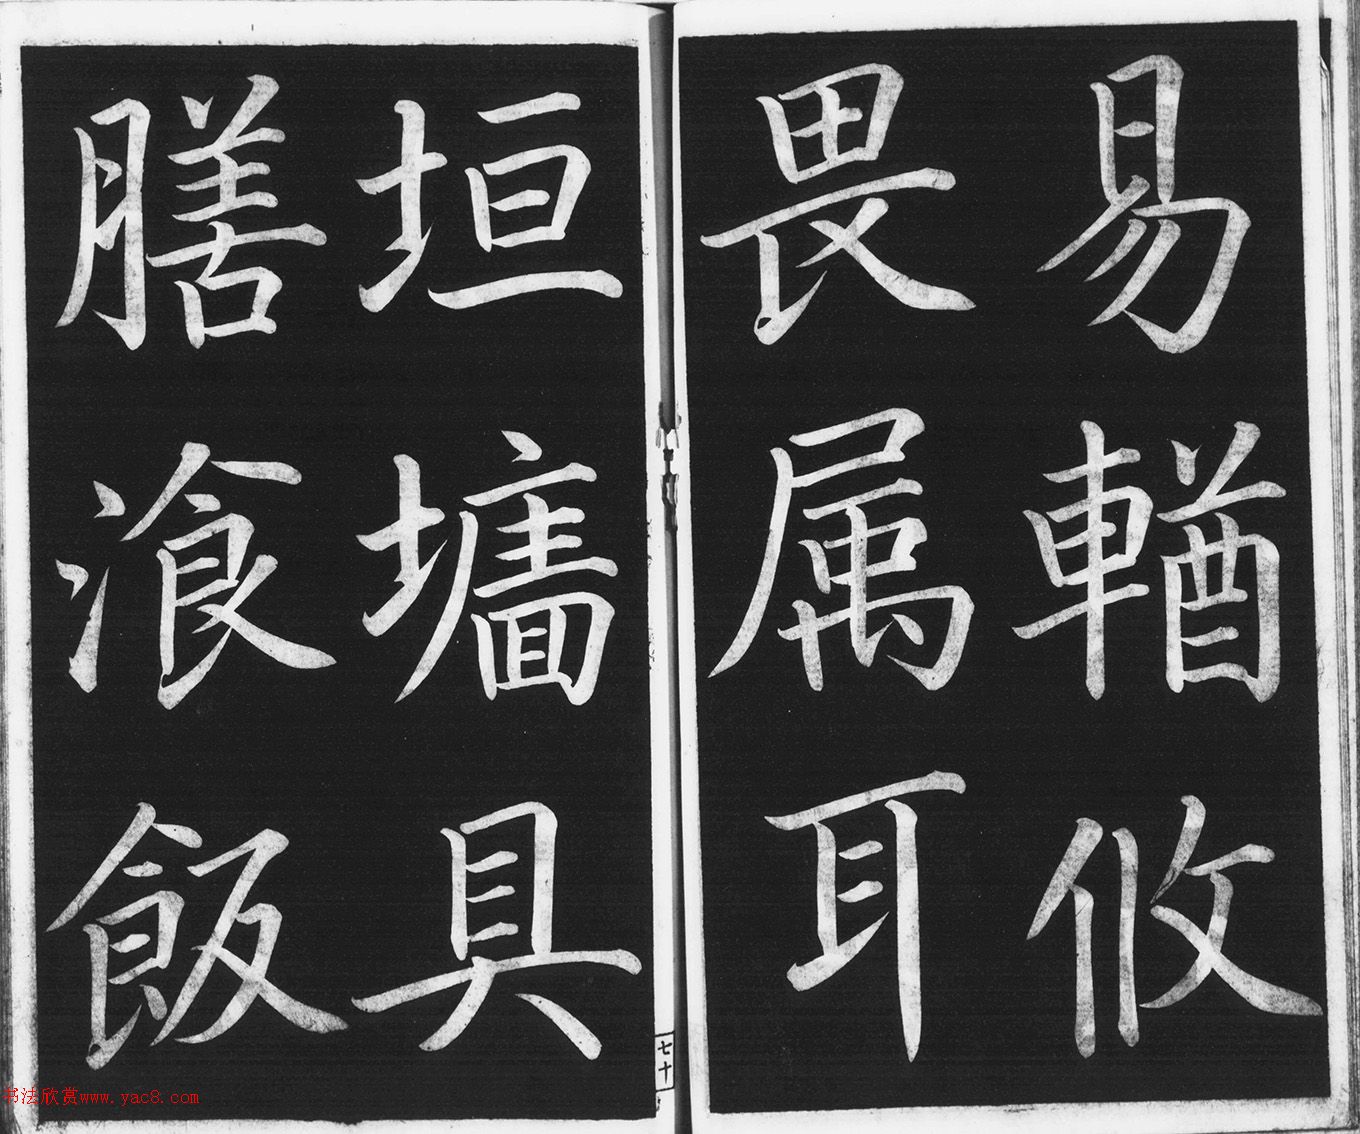 易輶攸
畏属耳
垣墻具
膳飡飯
七十
书法欣赏www.yac8.com